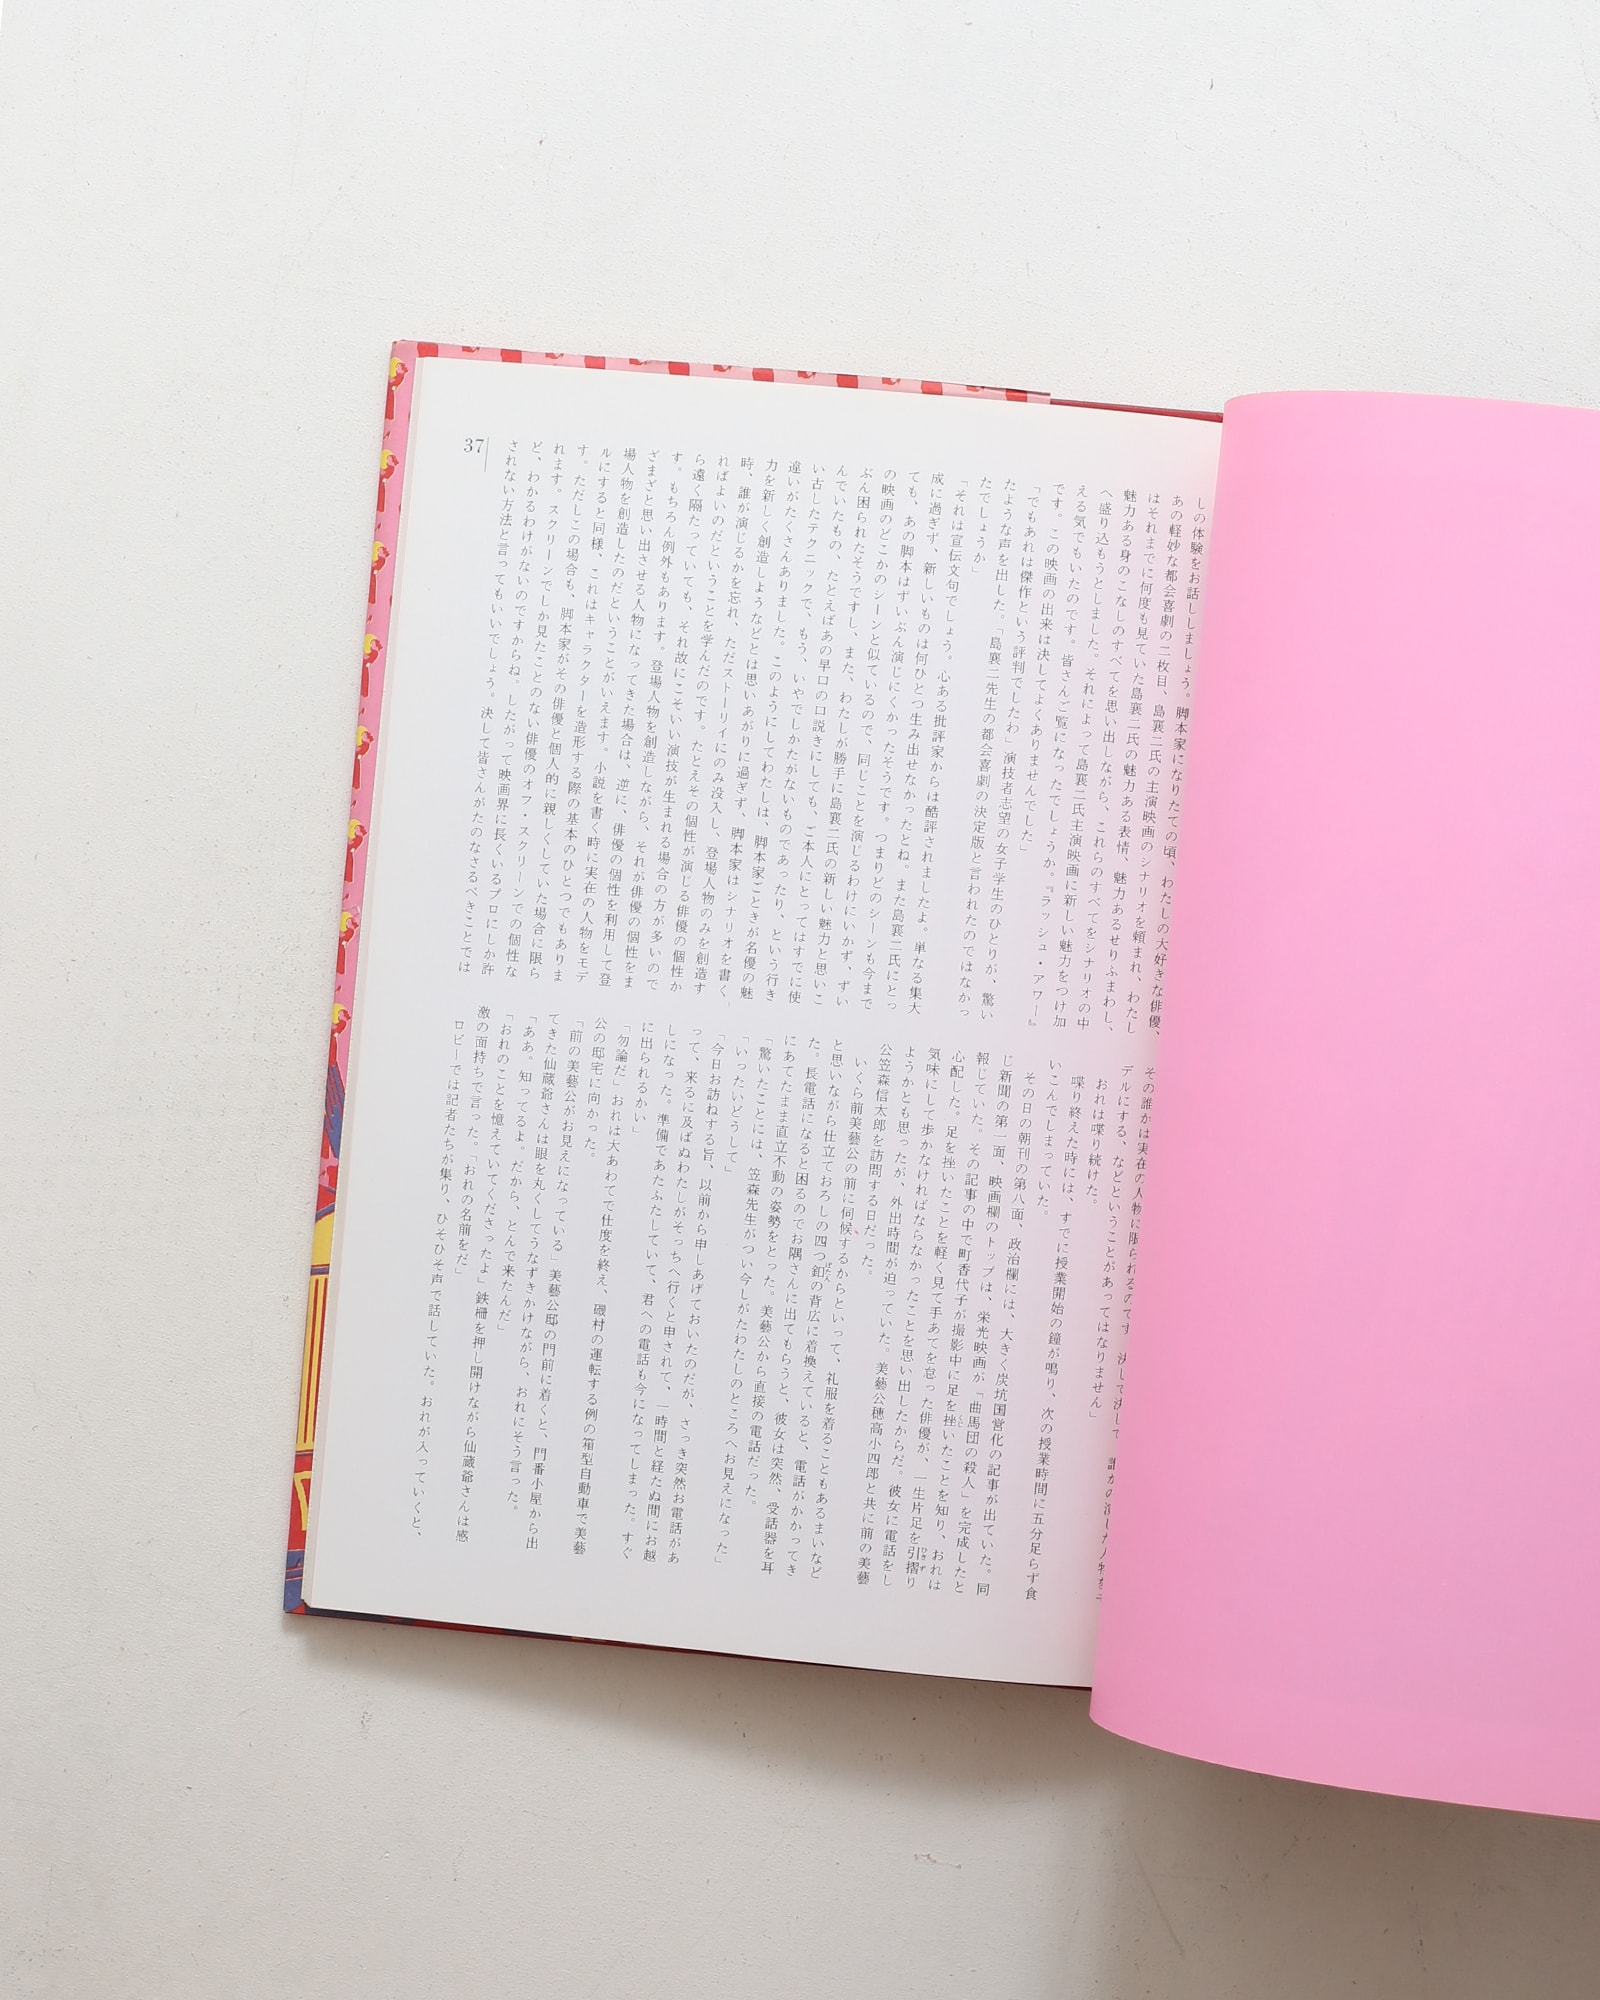 37
しの体験をお話ししましょう。脚本家になりたての頃、わたしの大好きな俳優、
あの軽妙な都会喜劇の二枚目、島襄二氏の主演映画のシナリオを頼まれ、わたし
はそれまでに何度も見ていた島襄二氏の魅力ある表情、魅力あるせりふまわし、
魅力ある身のこなしのすべてを思い出しながら、これらのすべてをシナリオの中
へ盛り込もうとしました。それによって島襄二氏主演映画に新しい魅力をつけ加
える気でもいたのです。皆さんご覧になったでしょうか。『ラッシュ・アワー』
です。この映画の出来は決してよくありませんでした」
「でもあれは傑作という評判でしたわ」演技者志望の女子学生のひとりが、驚い
たような声を出した。「島襄二先生の都会喜劇の決定版と言われたのではなかっ
たでしょうか」
「それは宣伝文句でしょう。心ある批評家からは酷評されましたよ。単なる集大
成に過ぎず、新しいものは何ひとつ生み出せなかったとね。また島襄二氏にとっ
ても、あの脚本はずいぶん演じにくかったそうです。つまりどのシーンも今まで
の映画のどこかのシーンと似ているので、同じことを演じるわけにいかず、ずい
ぶん困られたそうですし、また、わたしが勝手に島襄二氏の新しい魅力と思いこ
んでいたもの、たとえばあの早口の口説きにしても、ご本人にとってはすでに使
い古したテクニックで、もう、いやでしかたがないものであったり、という行き
違いがたくさんありました。このようにしてわたしは、脚本家ごときが名優の魅
力を新しく創造しようなどとは思いあがりに過ぎず、脚本家はシナリオを書く
時、誰が演じるかを忘れ、ただストーリイにのみ没入し、登場人物のみを創造す
ればよいのだということを学んだのです。たとえその個性が演じる俳優の個性か
ら遠く隔たっていても、それ故にこそいい演技が生まれる場合の方が多いので
す。もちろん例外もあります。登場人物を創造しながら、それが俳優の個性をま
ざまざと思い出させる人物になってきた場合は、逆に、俳優の個性を利用して登
場人物を創造したのだということがいえます。小説を書く時に実在の人物をモデ
ルにすると同様、これはキャラクターを造形する際の基本のひとつでもありま
す。ただしこの場合も、脚本家がその俳優と個人的に親しくしていた場合に限ら
れます。スクリーンでしか見たことのない俳優のオフ・スクリーンでの個性な
ど、わかるわけがないのですからね。したがって映画界に長くいるプロにしか許
されない方法と言ってもいいでしょう。決して皆さんがたのなさるべきことでは
その誰かは実在の人物に限られるのです。決して決して、
デルにする、などということがあってはなりません」
おれは喋り続けた。
喋り終えた時には、すでに授業開始の鐘が鳴り、次の授業時間に五分足らず食
いこんでしまっていた。
その日の朝刊の第八面、政治欄には、大きく炭坑国営化の記事が出ていた。同
じ新聞の第一面、映画欄のトップは、栄光映画が「曲馬団の殺人」を完成したと
報じていた。その記事の中で町香代子が撮影中に足を挫いたことを知り、おれは
心配した。足を挫いたことを軽く見て手あてを怠った俳優が、一生片足を引摺り
気味にして歩かなければならなかったことを思い出したからだ。彼女に電話をし
ようかとも思ったが、外出時間が迫っていた。美藝公穂高小四郎と共に前の美藝
公笠森信太郎を訪問する日だった。
いくら前美藝公の前に伺候するからといって、礼服を着ることもあるまいなど
と思いながら仕立ておろしの四つ釦の背広に着換えていると、電話がかかってき
た。長電話になると困るのでお隅さんに出てもらうと、彼女は突然、受話器を耳
にあてたまま直立不動の姿勢をとった。美藝公から直接の電話だった。
「驚いたことには、笠森先生がつい今しがたわたしのところへお見えになった」
「いったいどうして」
「今日お訪ねする旨、以前から申しあげておいたのだが、さっき突然お電話があ
って、来るに及ばぬわたしがそっちへ行くと申されて、一時間と経たぬ間にお越
しになった。準備であたふたしていて、君への電話も今になってしまった。すぐ
に出られるかい」
「勿論だ」おれは大あわてで仕度を終え、磯村の運転する例の箱型自動車で美藝
公の邸宅に向かった。
「前の美藝公がお見えになっている」美藝公邸の門前に着くと、門番小屋から出
てきた仙蔵爺さんは眼を丸くしてうなずきかけながら、おれにそう言った。
「ああ。知ってるよ。だから、とんで来たんだ」
「おれのことを憶えていてくださったよ」鉄柵を押し開けながら仙蔵爺さんは感
激の面持ちで言った。「おれの名前をだ」
ロビーでは記者たちが集り、ひそひそ声で話していた。おれが入っていくと、